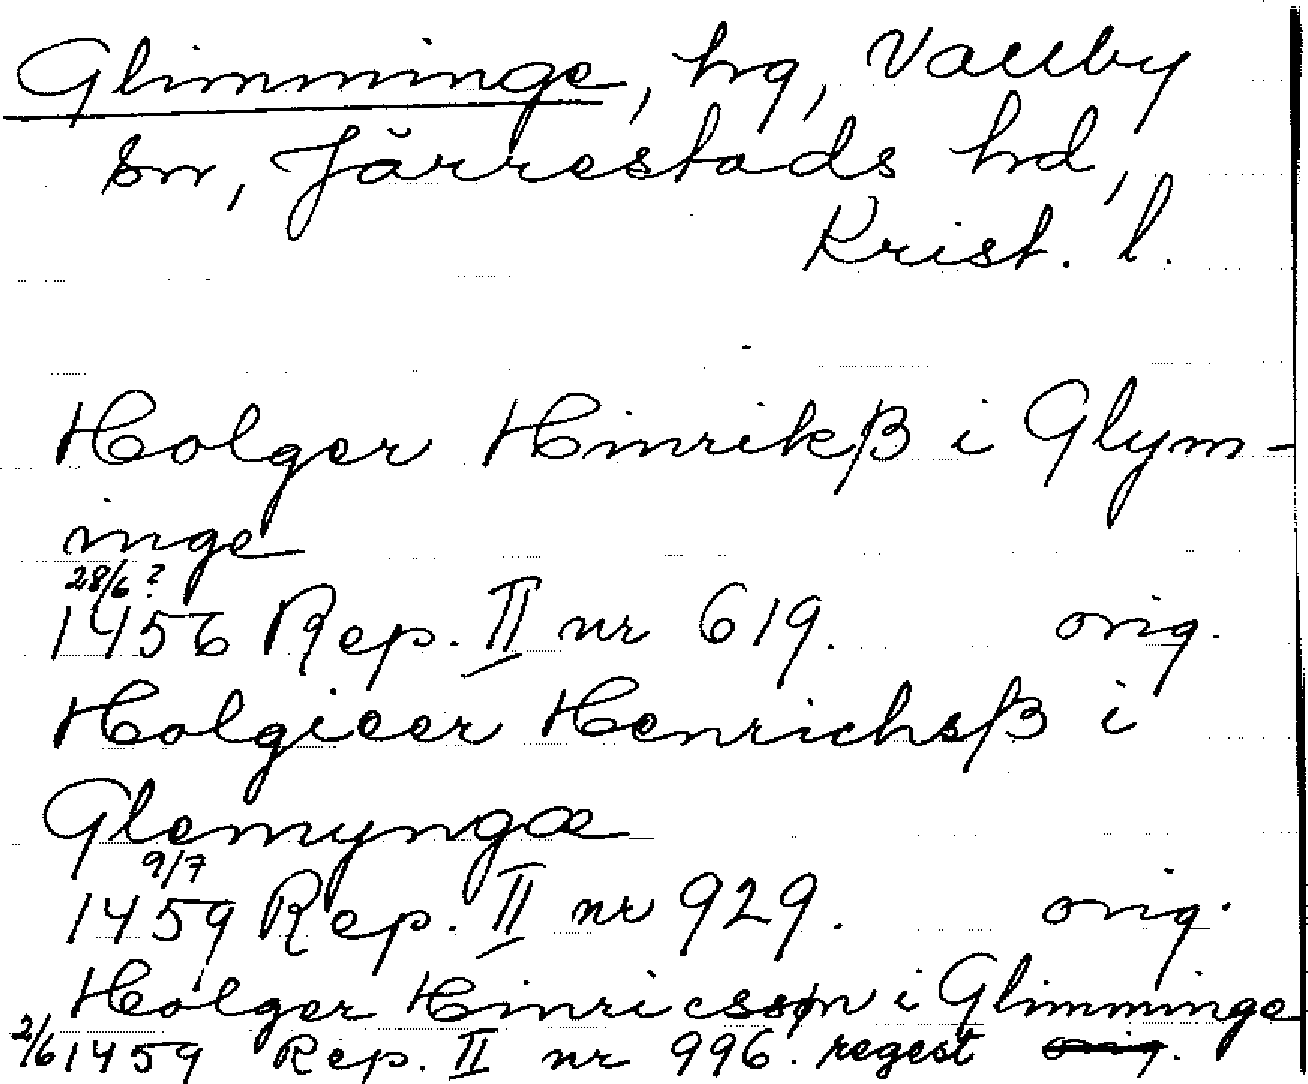 Glimminge, hg, Vallby
sn, Järrestads hd,
Krist. l.
Holger Hinrikß i Glym-
inge
28/6 ?
1456 Rep. II nr 619. orig.
Holgieer Henrichsß i
Glemyngæ
9/7
1459 Rep. II nr 929. orig.
Holger Hinricssøn i Glimminge
2/6 1459 Rep. II nr 996. regest orig.